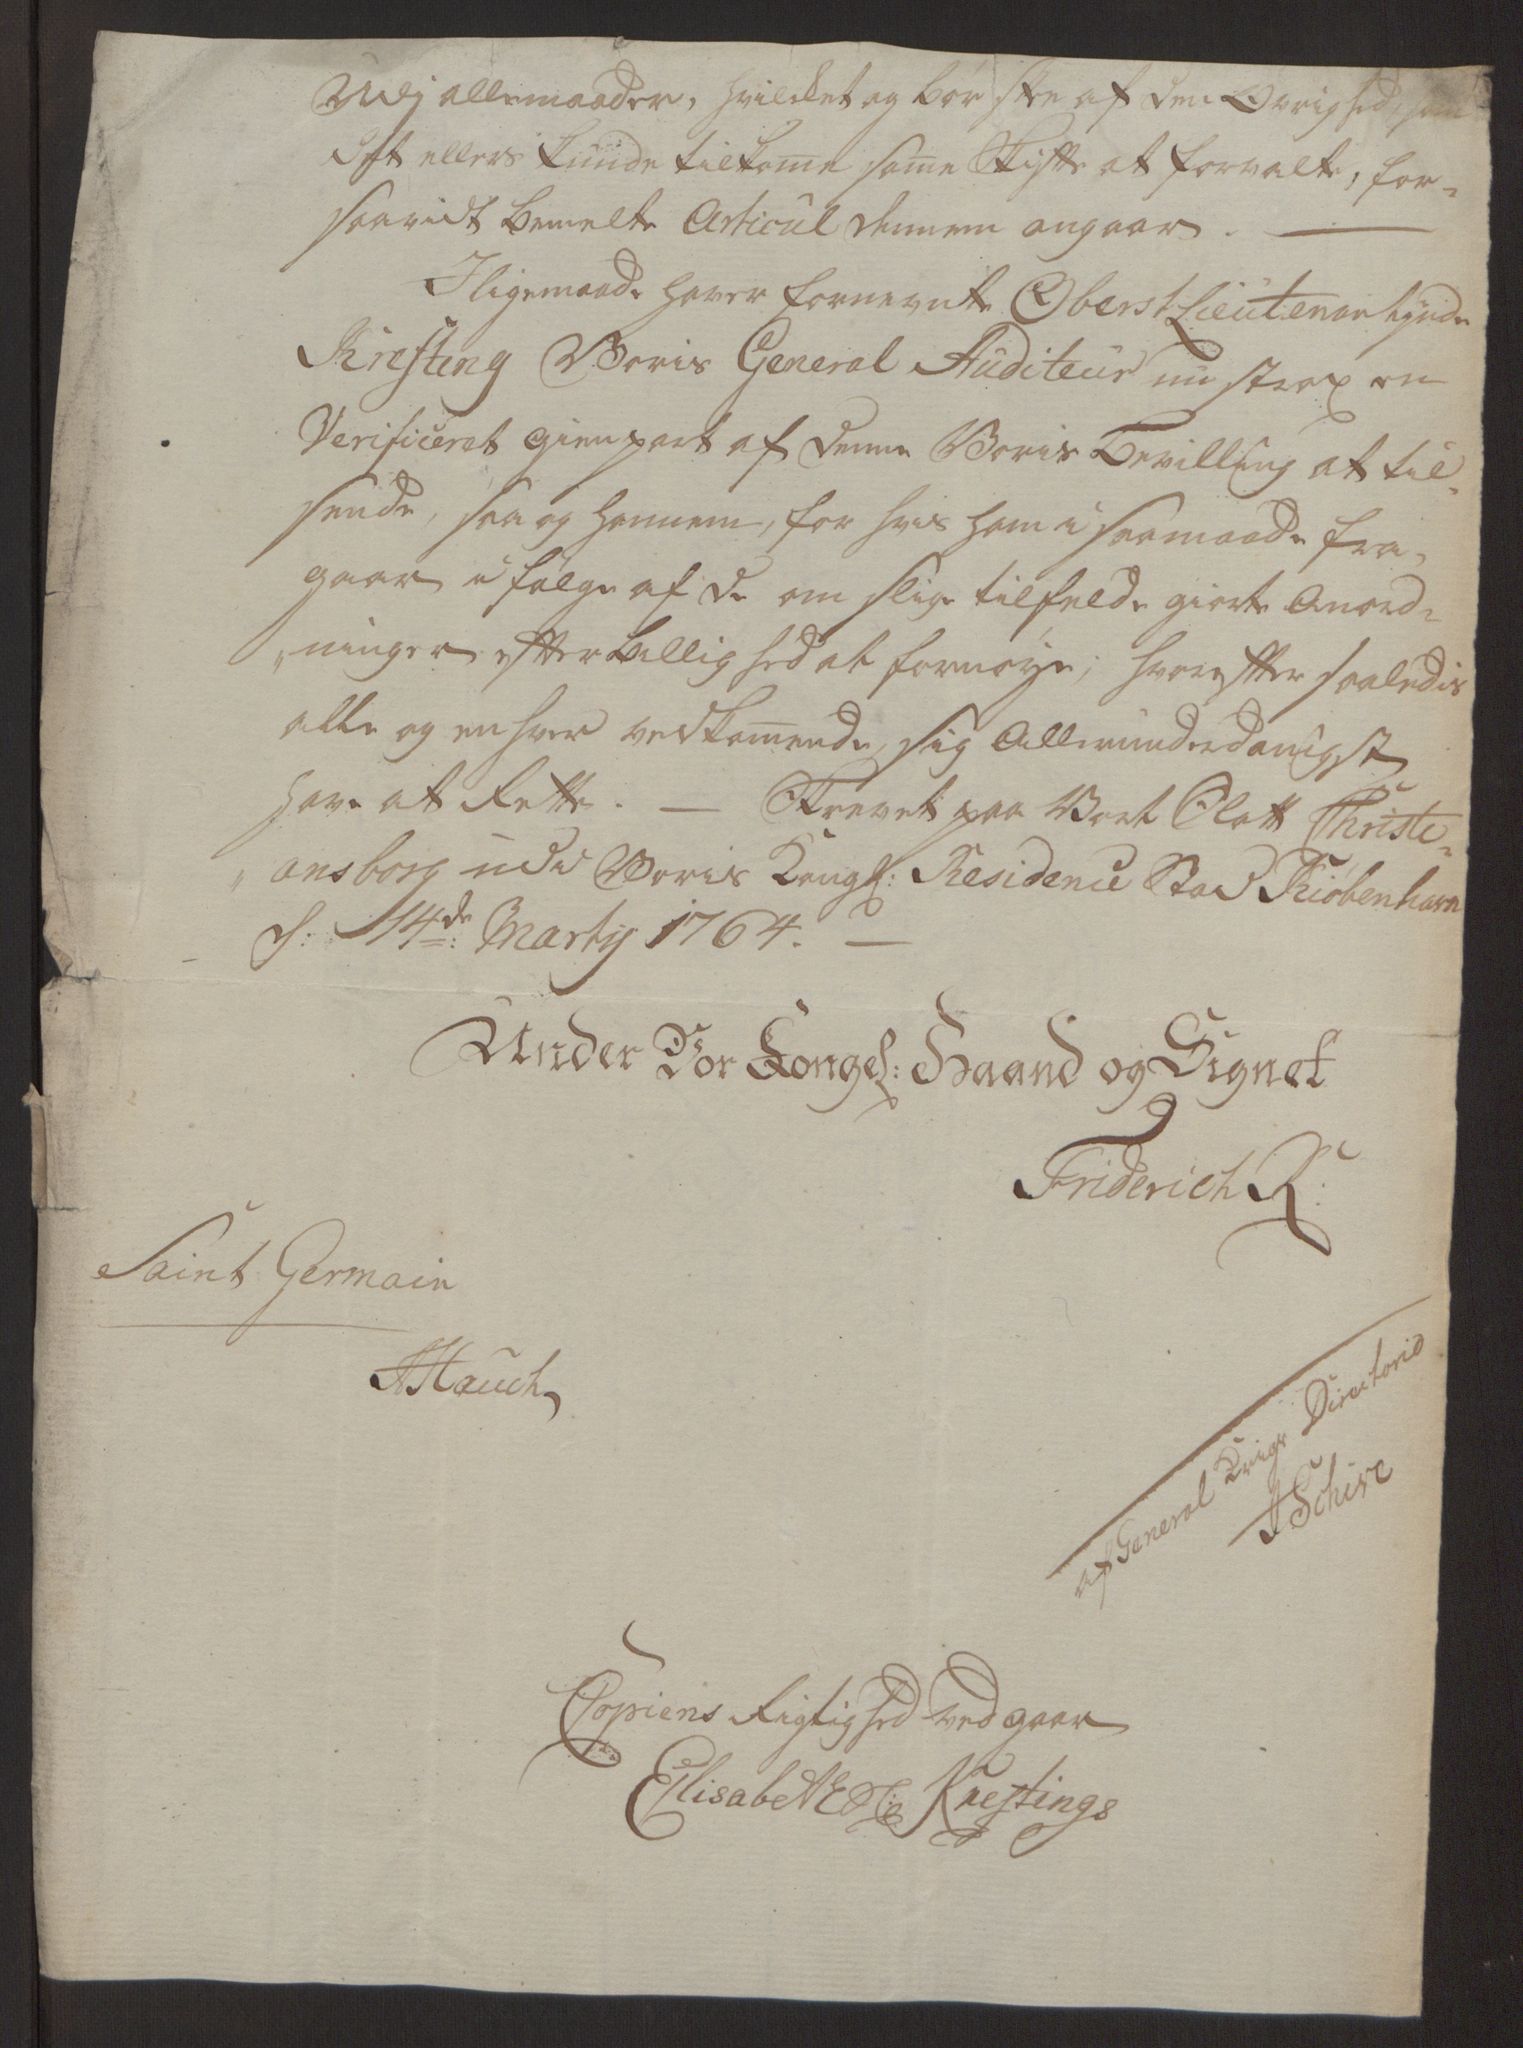 Udj allemaader, hvilcket og bør skee af den Øvrighed, som
det ellers kunde tilkom̅e sam̅e Skifte at forvalte, for-
saavidt bemelte Articul dennem angaar. —
Iligemaade haver fornevnte Oberst Lieutenantinde
Kresting Voris General Auditeur nu strax en
Verificeret gienpart af denne Voris Bevilling at til-
sende, saa og hannem, for hvis ham i saamaade fra-
gaar i følge af de om slige tilfelde giorte Anord-
„ninger efter billighed at fornøye; hvorefter saaledis
alle og enhver vedkom̅ende sig Allerunderdanigst
have at rette. — Skrevet paa Vort Slott Christi-
„ansborg udi Voris Kongl: Residence Stad Kiøbenhavn
d: 14de: Marty 1764. —
Under Vor Kongel: Haand og Signet
Friderich R:
Saint Germain
AHauch
af General Krigs Directorio
ASchive
Copiens Rigtighed vedgaar
Elisabeth Krestings